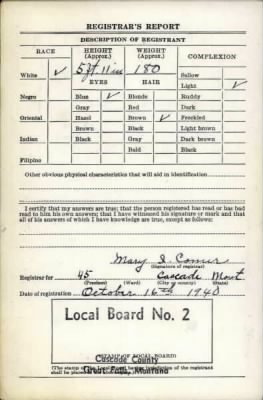 REGISTRAR'S REPORT
DESCRIPTION OF REGISTRANT
RACE HEIGHT (Approx.) WEIGHT (Approx.) COMPLEXION
White ✓ 5 ft 11 in 180 Sallow
EYES HAIR Light ✓
Negro Blue ✓ Blonde Ruddy
Gray Red Dark
Oriental Hazel Brown ✓ Freckled
Brown Black Light brown
Indian Black Gray Dark brown
Bald Black
Filipino
Other obvious physical characteristics that will aid in identification
I certify that my answers are true; that the person registered has read or has had
read to him his own answers; that I have witnessed his signature or mark and that
all of his answers of which I have knowledge are true, except as follows:
Mary
(Signature of registrar)
Registrar for 45 Cascade Mont
(Precinct) (Ward) (City or county) (State)
Date of registration October 16th 1940
Local Board No. 2
(STAMP OF LOCAL BOARD)
Cascade County
Great Falls, Montana
(The stamp of the Local Board having jurisdiction of the registrant
shall be placed in the above space.)